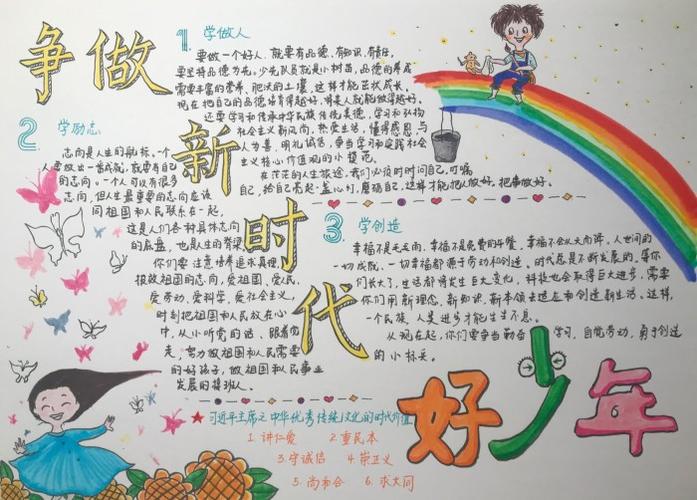 争做
新
时
代
好少年
1 学做人
要做一个好人,就要有品德、有知识、有责任,
要坚持品德为先。少先队员就是小树苗,品德的养成
需要丰富的营养、肥沃的土壤,这样才能茁壮成长。
现在把自己的品德培育得越好,将来人就能做得越好。
还要学习和传承中华民族传统美德,学习和弘扬
社会主义新风尚,热爱生活,懂得感恩,与
人为善,明礼诚信,争当学习和实践社会
主义核心价值观的小模范。
在茫茫的人生旅途,我们必须时时问自己,叮嘱
自己,给自己亮起一盏心灯,磨砺自己,这样才能把人做好,把事做好。
2 学励志
志向是人生的航标。一个
人要做出一番成就,就要有自己
的志向。一个人可以有很多
志向,但人生最重要的志向应该
同祖国和人民联系在一起,
这是人们各种具体志向
的底盘,也是人生的脊梁。
你们要注意培养追求真理、
报效祖国的志向,爱祖国、爱人民、
爱劳动、爱科学、爱社会主义,
时刻把祖国和人民放在心
中,从小听党的话、跟着党
走,努力做祖国和人民需要
的好孩子,做祖国和人民事业
发展的接班人。
3 学创造
幸福不是毛毛雨,幸福不是免费的午餐,幸福不会从天而降。人世间的
一切成就、一切幸福都源于劳动和创造。时代总是不断发展的,等你
们长大了,生活都将发生巨大变化,科技也会取得巨大进步,需要
你们用新理念、新知识、新本领去适应和创造新生活。这样,
一个民族、人类进步才能生生不息。
从现在起,你们要争当勤奋学习、自觉劳动、勇于创造
的小标兵。
★习近平主席之中华优秀传统文化的时代价值
1.讲仁爱 2.重民本
3.守诚信 4.崇正义
5.尚和合 6.求大同